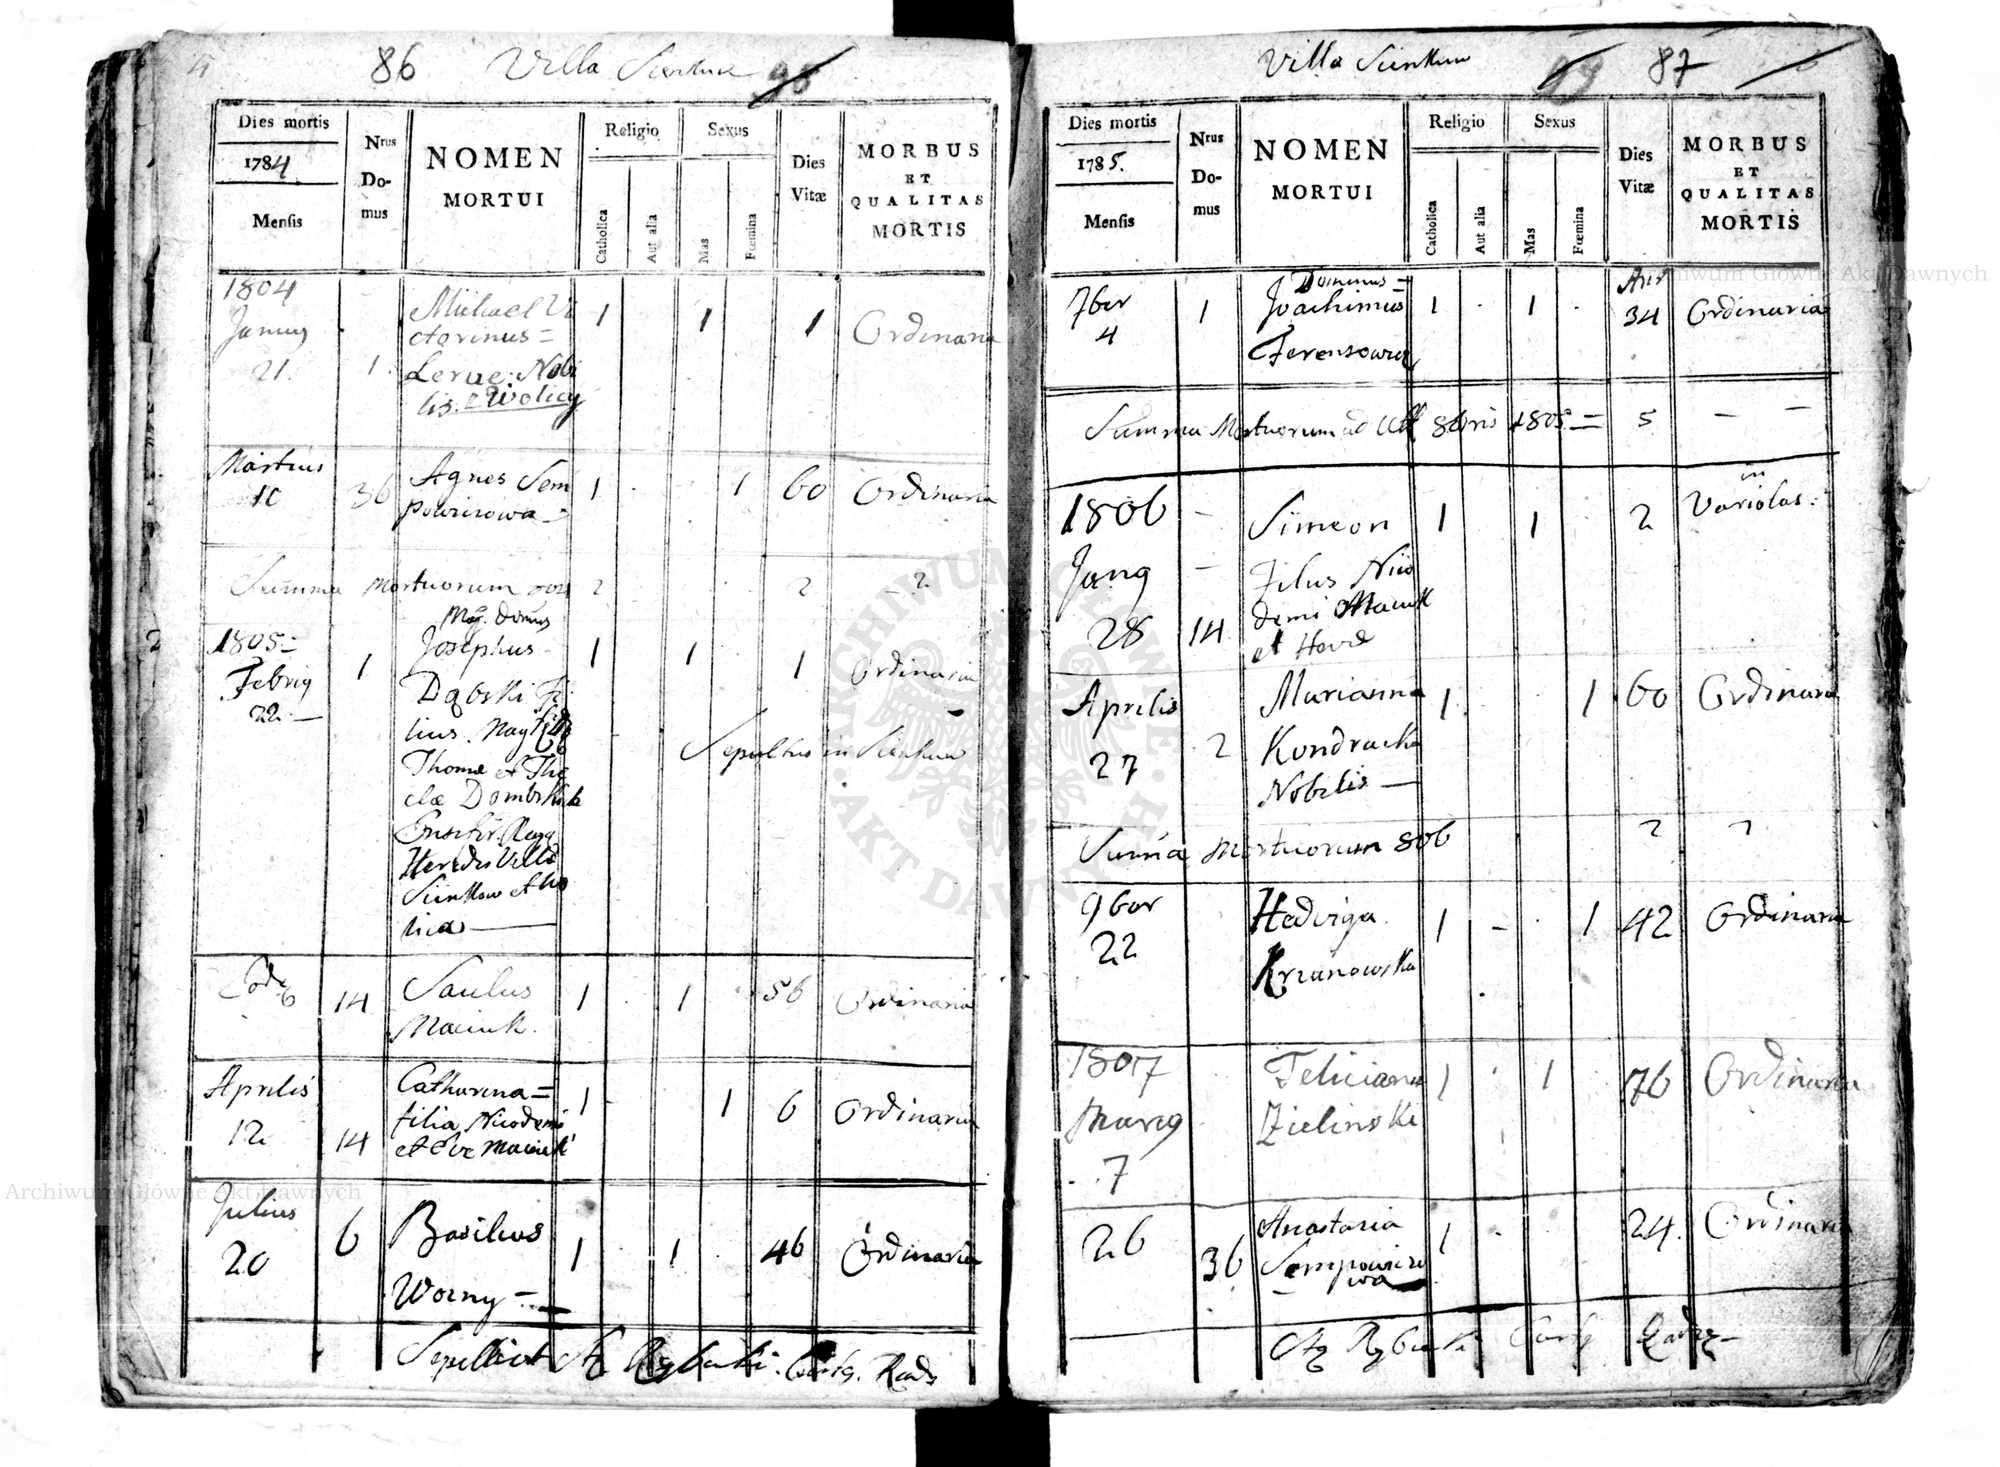 86 Villa Sienkow
Dies mortis
1784
Mensis
Nrus
Do-
mus
NOMEN
MORTUI
Religio
Catholica
Aut alia
Sexus
Mas
Fœmina
Dies
Vitæ
MORBUS
ET
QUALITAS
MORTIS
1804
21.
1.
Michael Vi
ctorinus =
Nobi
lis. z Wolicy
1
1
1
Ordinaria
Martius
10
36
Agnes Sem
powiczowa
1
1
60
Ordinaria
Summa Mortuorum 2 2 2
1805 =
22
1
Josephus
Dąbski Fi
lius.
Thomæ et The
clæ Dombskich
Heredis Villæ
Sienkow et Wo
lica
1
1
1
Ordinaria
Sepultus in Sienkow
14
Paulus
Maciuk.
1
1
56
Ordinaria
Aprilis
12
14
Catharina =
filia Nicodemi
et Evæ Maciuk
1
1
6
Ordinaria
Julius
20
6
Basilius
Worny
1
1
46
Ordinaria
Villa Sienkow 87
Dies mortis
1785.
Mensis
Nrus
Do-
mus
NOMEN
MORTUI
Religio
Catholica
Aut alia
Sexus
Mas
Fœmina
Dies
Vitæ
MORBUS
ET
QUALITAS
MORTIS
7ber
4
1
Dominus =
Joachimus
1
1
34
Ordinaria
Summa Mortuorum ad 8bris 1805 = 5
1806
28
14
Simeon
Filus Nico
demi Maciuk
et
1
1
2
in
Variolas.
Aprilis
27
2
Marianna
Kondracka
Nobilis
1
1
60
Ordinaria
Summa Mortuorum 806 2 2
9ber
22
Hedviga
Krzanowska
1
1
42
Ordinaria
1807
7
Felicianus
Zielinski
1
1
76
Ordinaria
26
36
Anastasia
Sempowiczo
wa
1
24.
Ordinaria
Archiwum Główne Akt Dawnych
Archiwum Główne Akt Dawnych
ARCHIWUM GŁÓWNE AKT DAWNYCH